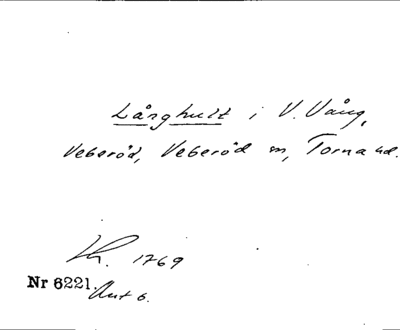 Långhult i V. Vång,
Veberöd, Veberöd sn, Torna hd.
Kh. 1769
Nr 6221. Akt 6.